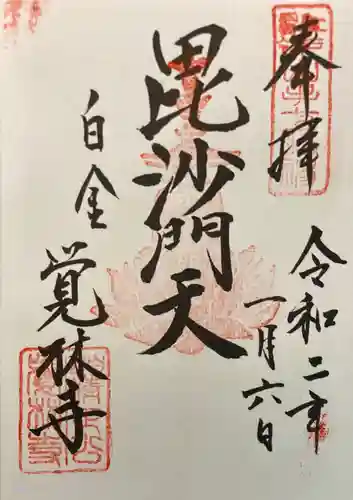 奉拝
令和二年
一月六日
毘沙門天
白金
覚林寺